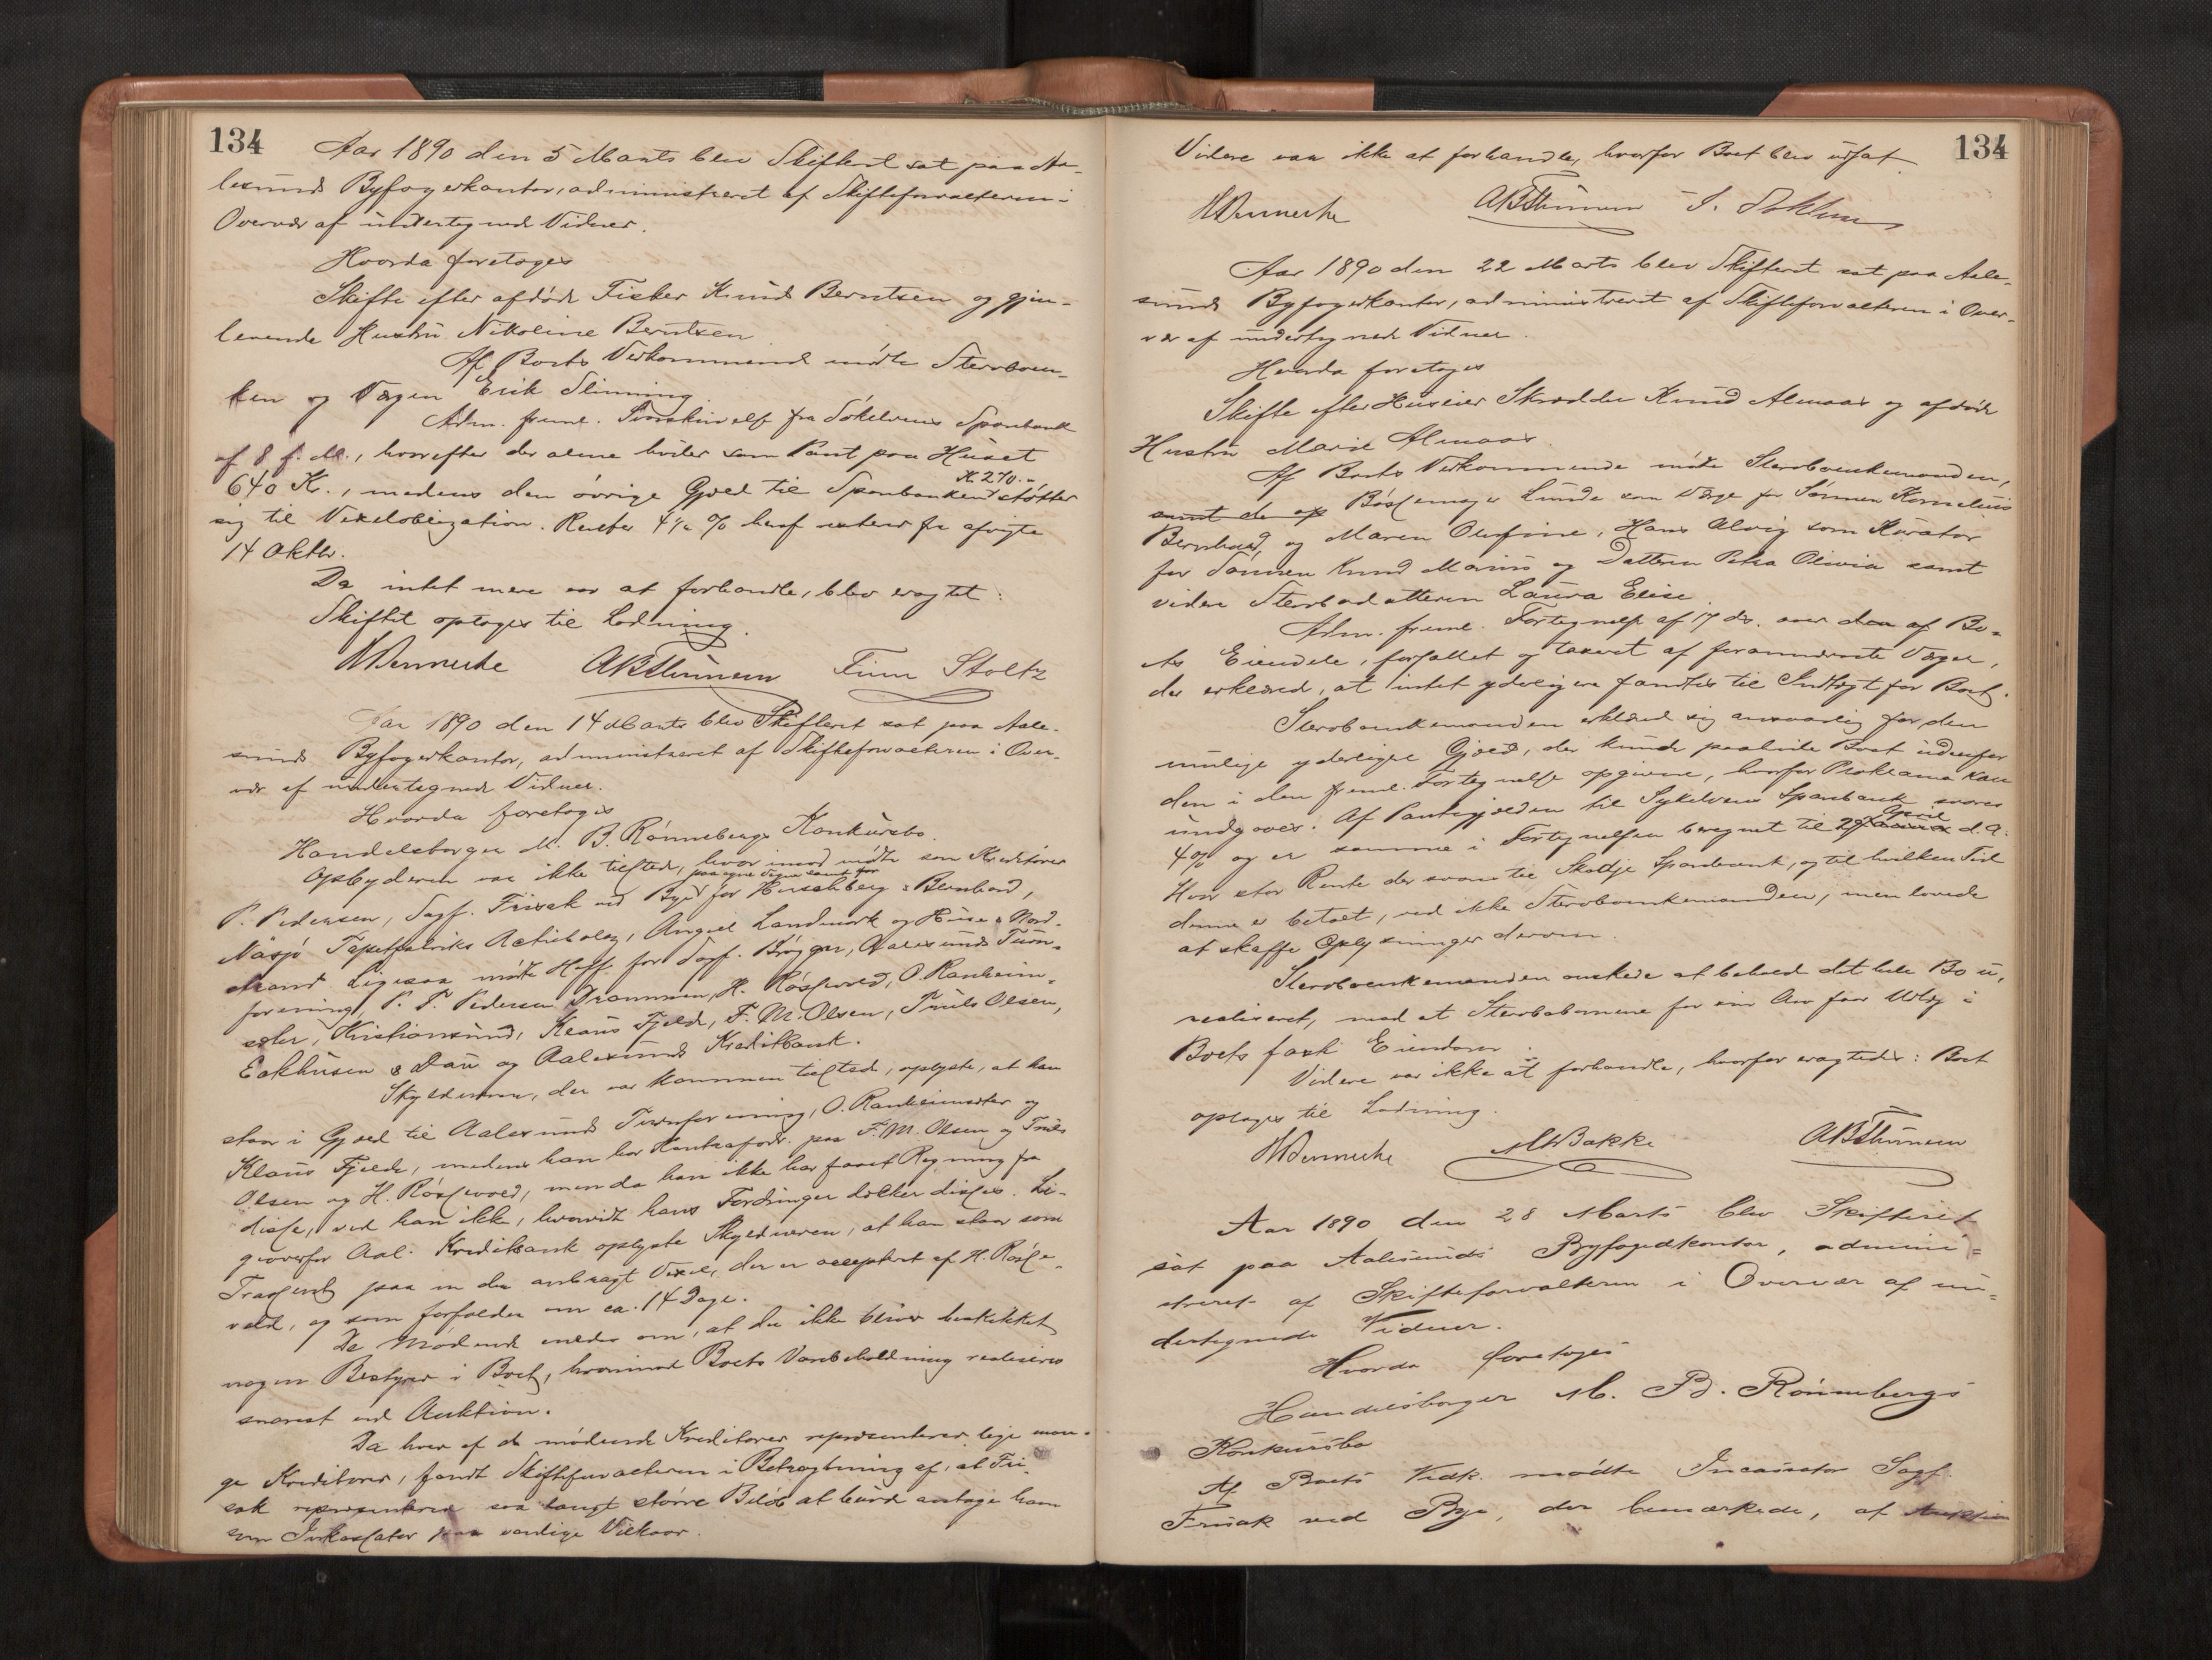 134
Aar 1890 den 5 Marts blev Skifteret sat paa Aa-
lesunds Byfogedkontor, administreret af Skifteforvalteren i
Overvær af undertegnede Vidner.
Hvorda foretoges
Skifte efter afdøde Fisker Knud Berntsen og gjen-
levende Hustru Nikoline Berntsen
Af Boets Vedkommende mødte Stervboen-
ken og Værgen Erik Slinning.
Adm. freml. Sonskrivelse fra Søkelvens Sparebank
af 8 f. M., hvorefter der alene hviler som Pant paa Huset
K. 270.-
640 K., medens den øvrige Gjæld til Sparebanken støtter
sig til Vexelobligation. Renter 4½ % heraf resterer fra afvigte
14 Oktbr.
Da intet mere var at forhandle, blev eragtet:
Skiftet optages til Lodning.
NDennecke ABThunem Finn Stoltz
Aar 1890 den 14 Marts blev Skifteret sat paa Aale-
sunds Byfogedkontor, administreret af Skifteforvalteren i Over-
vær af undertegnede Vidner.
Hvorda foretoges
Handelsborger M. B. Rønnebergs Konkursbo.
Opbyderen var ikke tilstede, hvorimod mødte som Kreditorer
paa egne Vegne samt for
P. Pedersen, Sagf. Frisak ved Bye for Hirschberg & Bernhard,
Nasjø Tapetfabriks Actiebolag, Angell Landmark og Huse & Mord-
strand. Ligesaa mødte Hoff for Sagf. Brøgger, Aalesunds Turn-
forening, P. T. Pedersen Drammen, H. Røsfvold, O. Ranheim-
sæter, Kristiansund, Klaus Fjelde, F. M. Olsen, Truls Olsen,
Eakhusen & Dau og Aalesunds Kreditbank.
Skyldneren, der var kommen tilstede, oplyste, at han
staar i Gjæld til Aalesunds Turnforening, O. Ranheimsæter og
Klaus Fjelde, medens han har Kontrafordr. paa F. M. Olsen og Truls
Olsen og H. Røsfvold, men da han ikke har faaet Regning fra
disse, ved han ikke, hvorvidt hans Fordringer dækker disses. Li-
geoverfor Aal. Kreditbank oplyste Skyldneren, at han staar som
Trassent paa en der anbragt Vexel, der er accepteret af H. Røsf-
vold, og som forfalder om ca. 14 Dage.
De Mødende enedes om, at der ikke bliver beskikket
nogen Bestyrer i Boet, hvorimod Boets Varebeholdning realiseres
snarest ved Auktion.
Da hver af de mødende Kreditorer repræsenterer lige man-
ge Kreditorer, fandt Skifteforvalteren i Betragtning af, at Fri-
sak repræsenterer saa langt større Beløb at burde antage ham
som Inkassator paa vanlige Vilkaar.
134
Videre var ikke at forhandle, hvorfor Boet blev udsat.
NDennecke ABThunem
Aar 1890 den 22 Marts blev Skifteret sat paa Aale-
sunds Byfogedkontor, administreret af Skifteforvalteren i Over-
vær af undertegnede Vidner.
Hvorda foretoges
Skifte efter Huseier Skrædder Knud Almaas og afdøde
Hustru Marie Almaas.
Af Boets Vedkommende mødte Stervboenkemanden,
samt de op Bøssemager Lunde som Værge for Sønnen Kornelius
Bernhard, og Maren Olufine, Hans Alvig som Kurator
for Sønnen Knud Marius og Datteren Petra Olivia samt
videre Stervbodatteren Laura Elise.
Adm. freml. Fortegnelse af 17 ds. over den af Bo-
ets Eiendele, forfattet og taxeret af forannævnte Værger,
der erklærede, at intet yderligere fandtes til Indtægt for Boet.
Stervboenkemanden erklærede sig ansvarlig for den
mulige yderligere Gjæld, der kunde paahvile Boet udenfor
den i den freml. Fortegnelse opgivne, hvorfor Proklama kan
undgaaes. Af Pantegjælden til Sykelvens Sparebank svares
April
4% og er samme i Fortegnelsen beregnet til 29 Januar d. A.
Hvor stor Rente der svares til Skodje Sparebank, og til hvilken Tid
denne er betalt, ved ikke Stervboenkemanden, men lovede
at skaffe Oplysninger derom.
Stervboenkemanden ønskede at beholde det hele Bo u-
realiseret, mod at Stervbobørnene for sin Arv faar Udlæg i
Boets faste Eiendom.
Videre var ikke at forhandle, hvorfor eragtedes: Boet
optages til Lodning.
NDennecke MBakke ABThunem
Aar 1890 den 28 Marts blev Skifteret
sat paa Aalesunds Byfogedkontor, admini-
streret af Skifteforvalteren i Overvær af un-
dertegnede Vidner.
Hvorda foretoges
Handelsborger M. B. Rønnebergs
Konkursbo
Af Boets Vedk. mødte Incassator Sagf.
Frisak ved Bye, der bemærkede, at Auktion